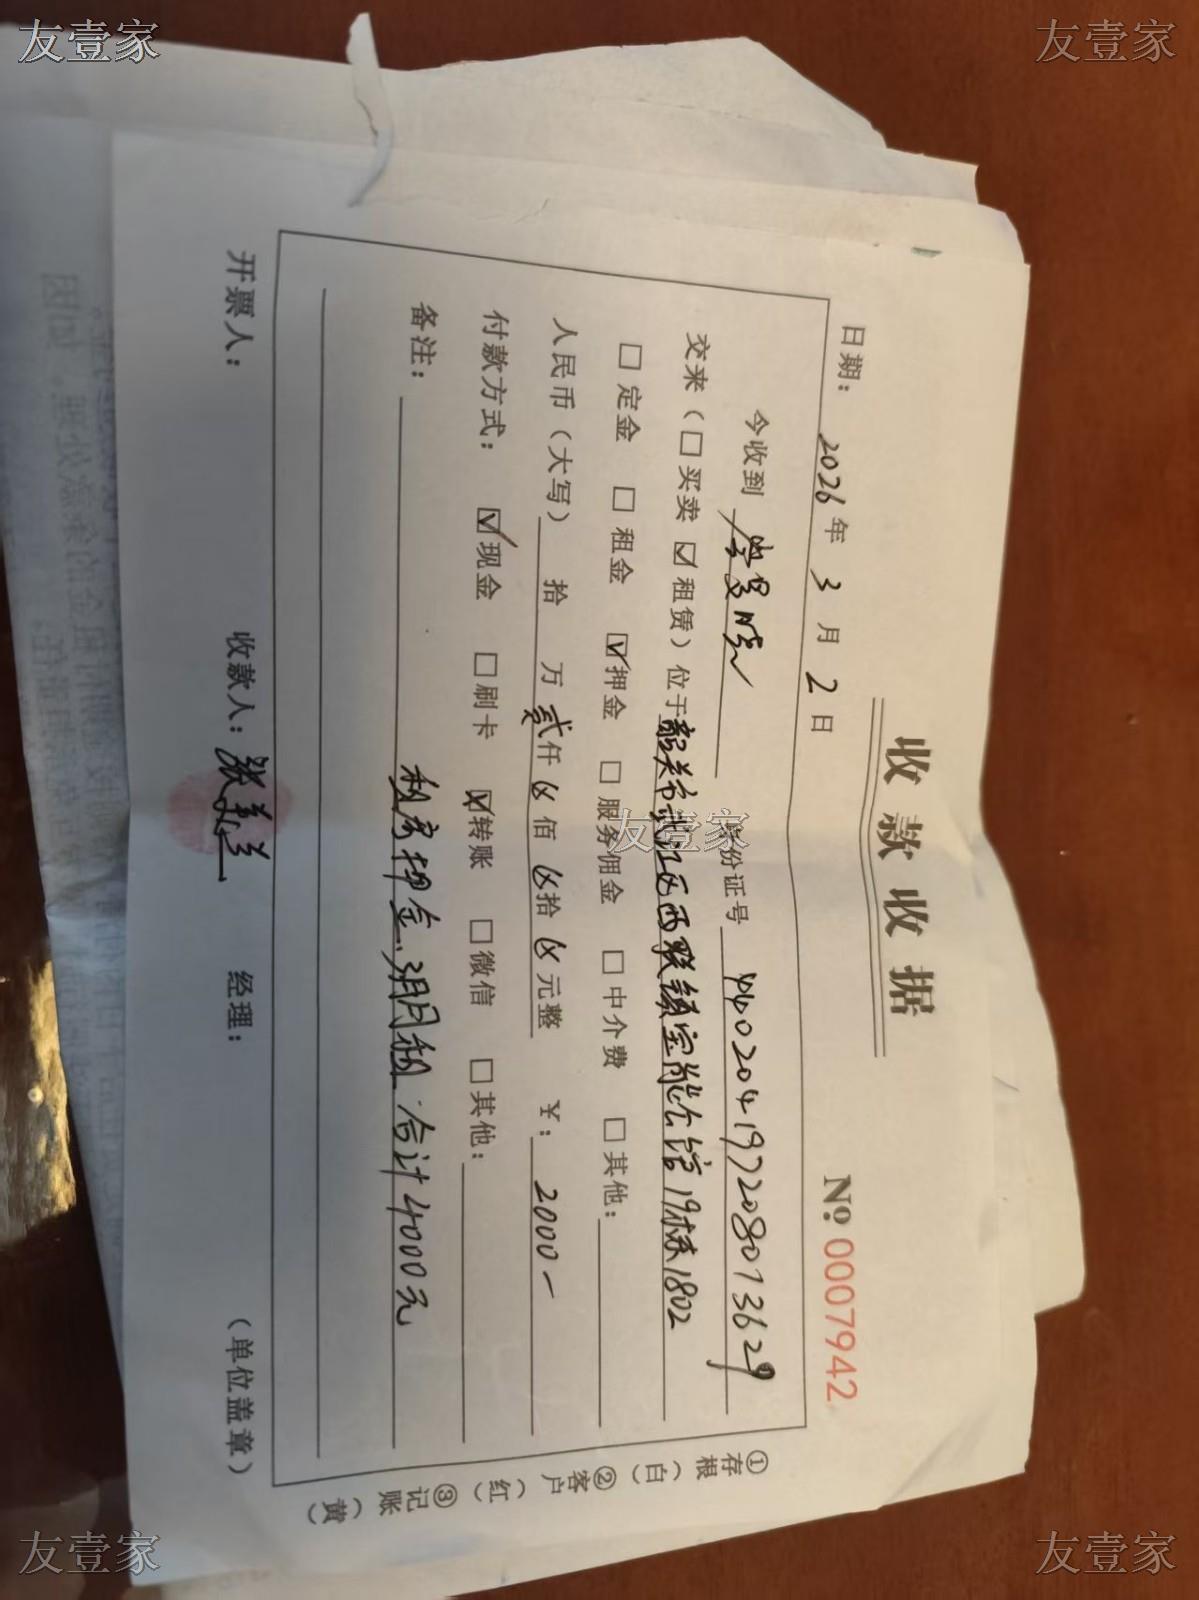 友壹家
友壹家
收款收据
No. 0007942
日期: 2026 年 3 月 2 日
今收到 身份证号 440204197208073629
交来(□买卖 ☑租赁)位于韶关市武江区西联镇宝能公馆19栋1802
□定金 □租金 ☑押金 □服务佣金 □中介费 □其他:
人民币(大写) 拾 万 贰仟 佰 拾 元整 ¥: 2000-
付款方式: ☑现金 □刷卡 转账 □微信 □其他:
备注: 租房押金,3月月租.合计4000元
开票人: 收款人: 张 兰 经理: (单位盖章)
①存根(白) ②客户(红) ③记账(黄)
友壹家
友壹家
友壹家